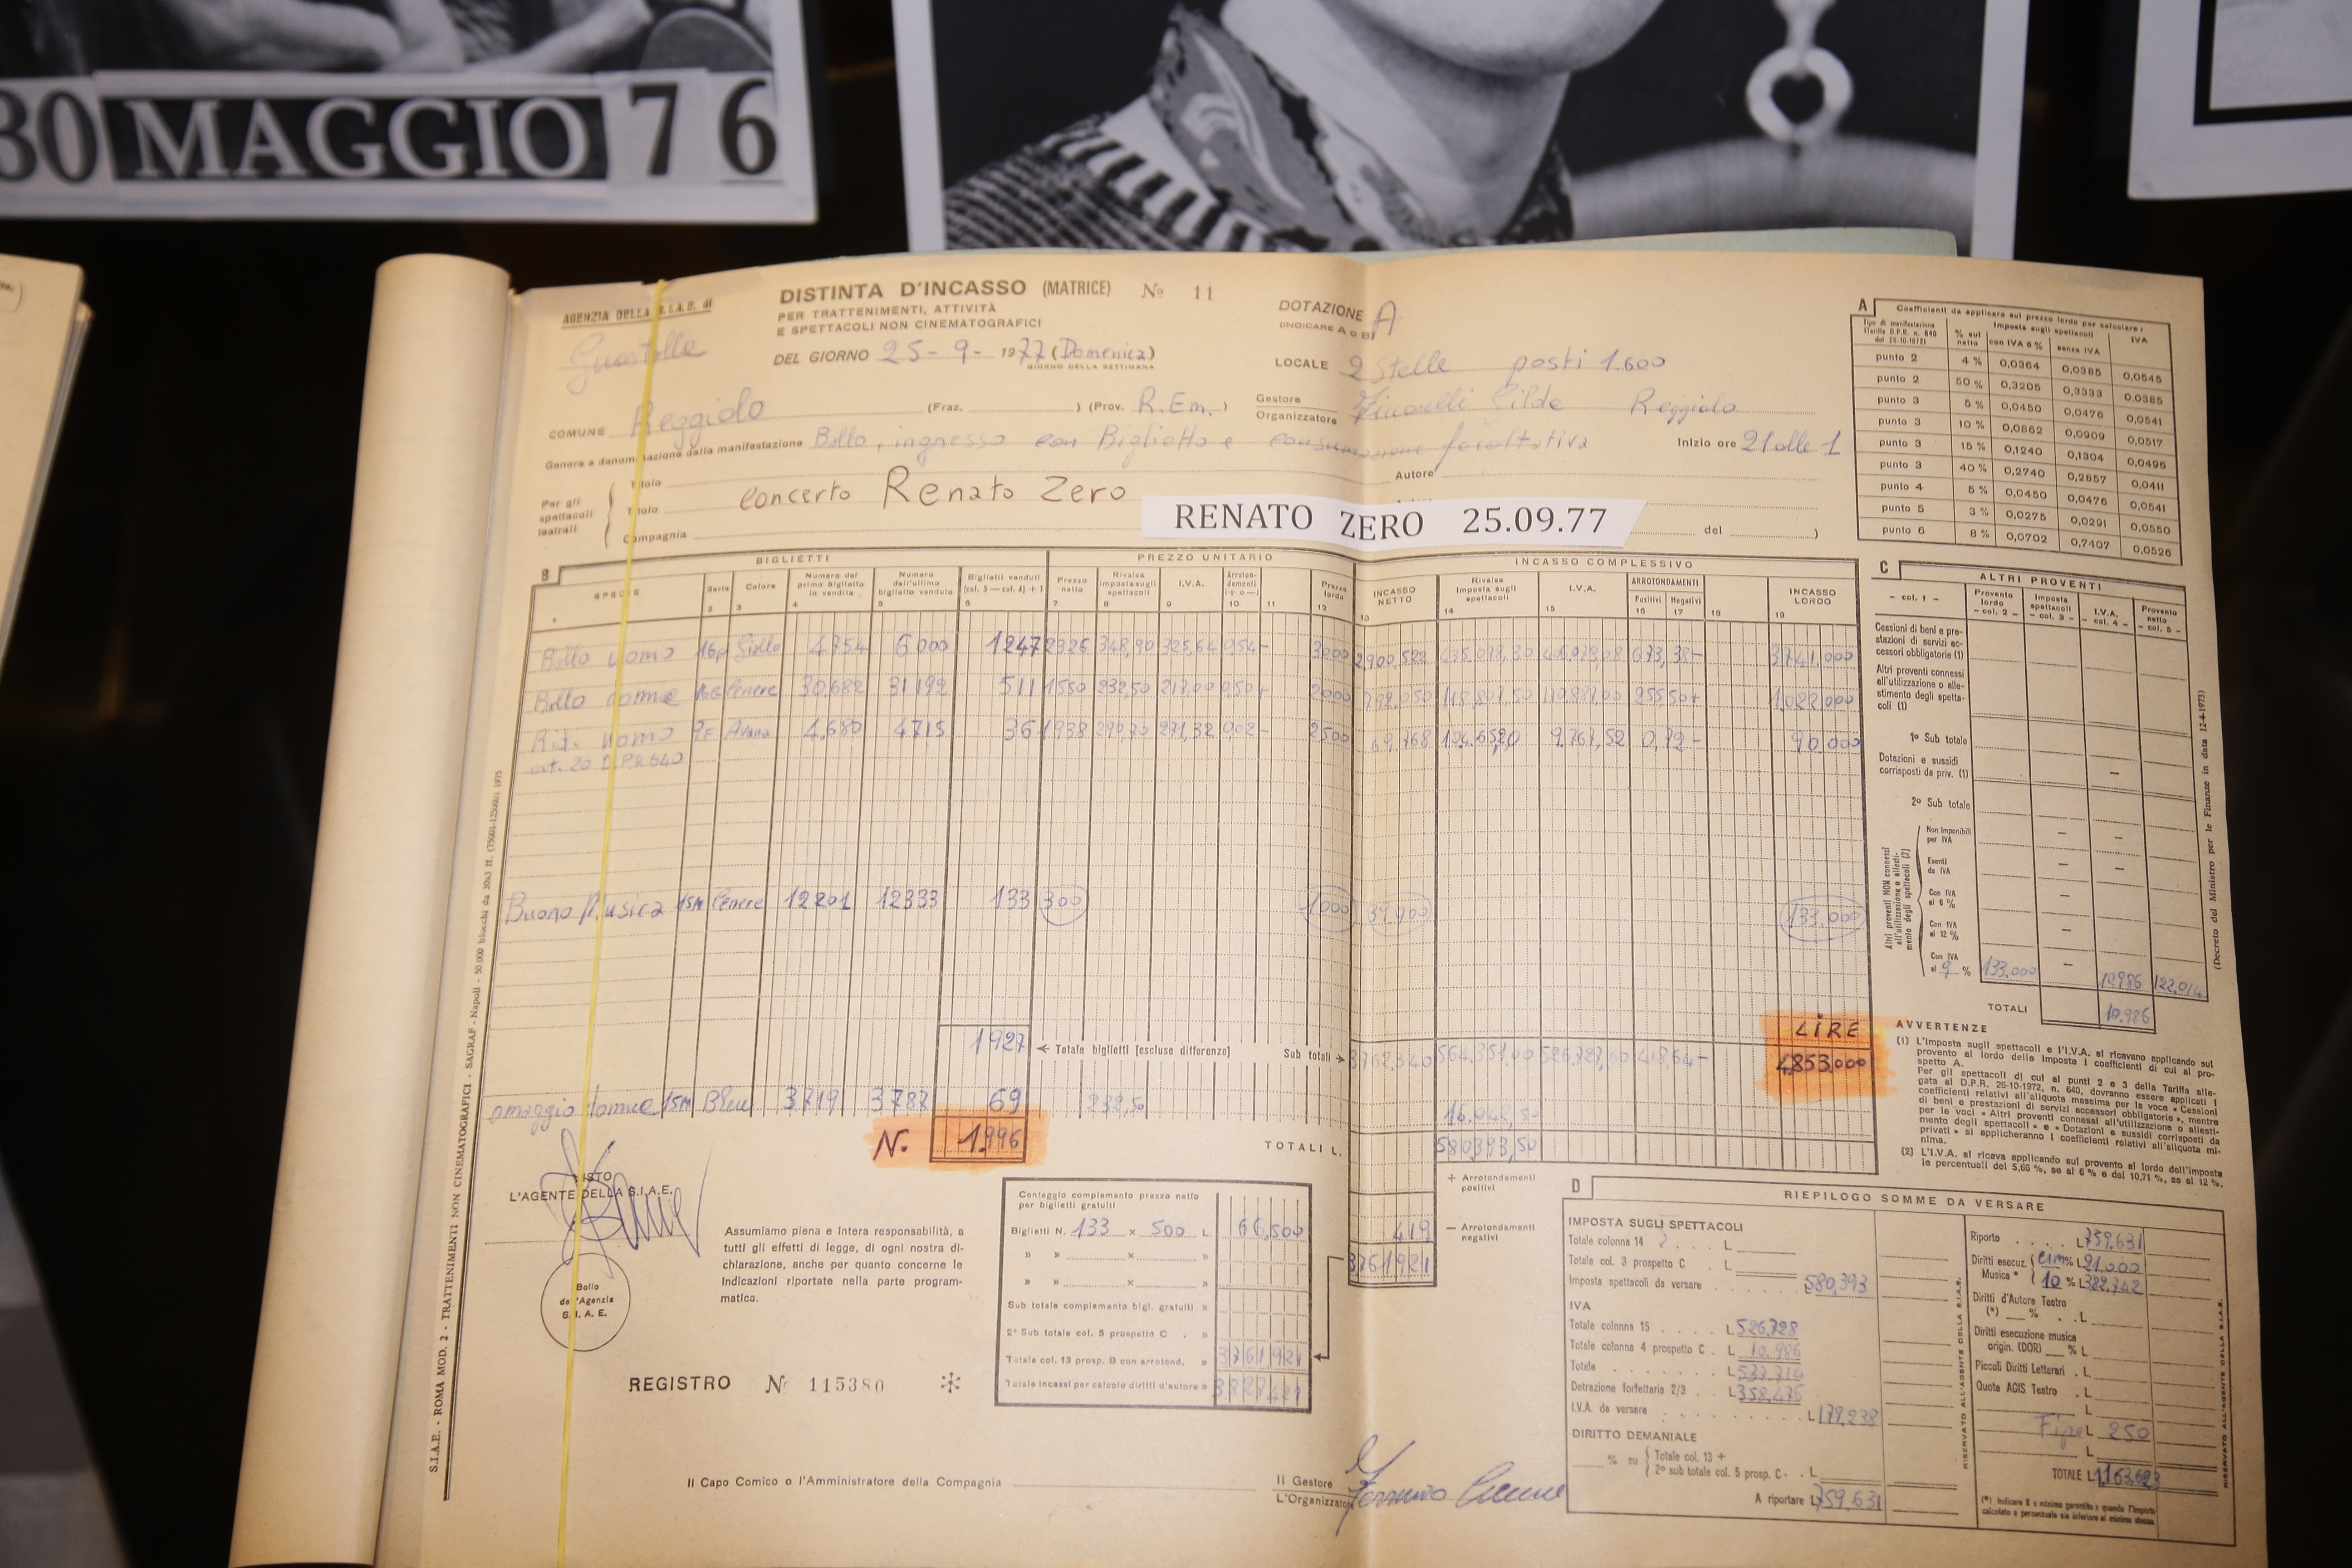 30 MAGGIO 76
AGENZIA DELLA S.I.A.E. di
Guastalla
DISTINTA D'INCASSO (MATRICE) No 11
PER TRATTENIMENTI, ATTIVITÀ
E SPETTACOLI NON CINEMATOGRAFICI
DEL GIORNO 25-9-1977 (Domenica)
GIORNO DELLA SETTIMANA
DOTAZIONE A
(INDICARE A o B)
LOCALE 2 Stelle posti 1.600
COMUNE Reggiolo (Fraz. ) (Prov. R.Em.)
Gestore
Organizzatore Gilde Reggiolo
Genere e denominazione della manifestazione Ballo, ingresso con Biglietto e consumazione facoltativa Inizio ore 21 alle 1
Per gli spettacoli teatrali
Titolo Autore
Titolo concerto Renato Zero
Compagnia del )
RENATO ZERO 25.09.77
A Coefficienti da applicare sul prezzo lordo per calcolare:
Tipo di manifestazione (Tariffa D.P.R. n. 640 del 26-10-1972) % sul netto Imposta sugli spettacoli con IVA 6% senza IVA IVA
punto 2 4 % 0,0364 0,0385 0,0545
punto 2 50 % 0,3205 0,3333 0,0385
punto 3 5 % 0,0450 0,0476 0,0541
punto 3 10 % 0,0862 0,0909 0,0517
punto 3 15 % 0,1240 0,1304 0,0496
punto 3 40 % 0,2740 0,2857 0,0411
punto 4 5 % 0,0450 0,0476 0,0541
punto 5 3 % 0,0275 0,0291 0,0550
punto 6 8 % 0,0702 0,7407 0,0526
B BIGLIETTI PREZZO UNITARIO INCASSO COMPLESSIVO
SPECIE Serie Colore Numero del primo biglietto in vendita Numero dell'ultimo biglietto venduto Biglietti venduti (col. 5 — col. 4) + 1 Prezzo netto Rivalsa imposta sugli spettacoli I.V.A. Arrotondamenti (+ o —) Prezzo lordo INCASSO NETTO Rivalsa Imposta sugli spettacoli I.V.A. ARROTONDAMENTI Positivi Negativi INCASSO LORDO
1 2 3 4 5 6 7 8 9 10 11 12 13 14 15 16 17 18 19
Ballo uomo 16p Giallo 4.754 6000 1247 2326 348,90 325,64 0,54- 3000 2900,522 435.078,30 673,38- 3741.000
Ballo donne Cenere 30,682 31192 511 1550 232,50 217,00 0,50+ 2000 792.050 118.807,50 110.887,00 255,50+ 1,022,000
Rid. uomo Avana 4.680 4715 36 1938 290,70 271,32 0,02- 2500 69,768 9.767,52 0,72- 90.000
art. 20 D.P.R 640
Buono Musica 15M Cenere 12201 12333 133 300 1000 39.900 133.000
1927 ← Totale biglietti [escluse differenze] Sub totali → 3762,340 564,351,00 526,727,60 418,64-
LIRE
4.853.000
omaggio donne 15M Bleu 3719 3787 69 232,50 16.042,50
N. 1.996
TOTALI L. 580393,50
C ALTRI PROVENTI
- col. 1 - Provento lordo - col. 2 - Imposta spettacoli - col. 3 - I.V.A. - col. 4 - Provento netto - col. 5 -
Cessioni di beni e prestazioni di servizi accessori obbligatorie (1)
Altri proventi connessi all'utilizzazione o allestimento degli spettacoli (1)
1º Sub totale
Dotazioni e sussidi corrisposti da priv. (1)
2º Sub totale
Altri proventi NON connessi all'utilizzazione o allestimento degli spettacoli (2)
Non Imponibili per IVA
Esenti da IVA
Con IVA al 6 %
Con IVA al 12 %
Con IVA al 9 % 133.000 10.986 122,014
TOTALI 10.986
(Decreto del Ministro per le Finanze in data 12-4-1973)
AVVERTENZE
(1) L'imposta sugli spettacoli e l'I.V.A. si ricavano applicando sul
provento al lordo delle imposte i coefficienti di cui al prospetto A.
Per gli spettacoli di cui ai punti 2 e 3 della Tariffa allegata al D.P.R. 26-10-1972, n. 640, dovranno essere applicati i
coefficienti relativi all'aliquota massima per la voce « Cessioni
di beni e prestazioni di servizi accessori obbligatorie », mentre
per le voci « Altri proventi connessi all'utilizzazione o allestimento degli spettacoli » e « Dotazioni e sussidi corrisposti da
privati » si applicheranno i coefficienti relativi all'aliquota minima.
(2) L'I.V.A. si ricava applicando sul provento al lordo dell'imposta
le percentuali del 5,66 %, se al 6 % e del 10,71 %, se al 12 %.
VISTO
L'AGENTE DELLA S.I.A.E.
Bollo
dell'Agenzia
S.I.A.E.
Assumiamo piena e intera responsabilità, a
tutti gli effetti di legge, di ogni nostra dichiarazione, anche per quanto concerne le
indicazioni riportate nella parte programmatica.
REGISTRO No 115380
Conteggio complemento prezzo netto
per biglietti gratuiti
Biglietti N. 133 x 500 L 66,500
» » x »
» » x »
Sub totale complemento bigl. gratuiti »
2º Sub totale col. 5 prospetto C . »
Totale col. 13 prosp. B con arrotond. » 3761921
Totale incassi per calcolo diritti d'autore »
+ Arrotondamenti positivi
419 — Arrotondamenti negativi
3761921
D RIEPILOGO SOMME DA VERSARE
IMPOSTA SUGLI SPETTACOLI
Totale colonna 14 L
Totale col. 3 prospetto C L
Imposta spettacoli da versare L 580,393
IVA
Totale colonna 15 L 526,728
Totale colonna 4 prospetto C L 10.986
Totale L 537.714
Detrazione forfettaria 2/3 L 358,476
I.V.A. da versare L 179,238
DIRITTO DEMANIALE
% su Totale col. 13 +
2º sub totale col. 5 prosp. C L
A riportare L 759,631
Riporto L 759,631
Diritti esecuz. Musica * % L 21,000
10 % L 382,742
Diritti d'Autore Teatro (*) % L
Diritti esecuzione musica origin. (DOR) % L
Piccoli Diritti Letterari L
Quota AGIS Teatro L
L
Fipe L 250
L
TOTALE L
RISERVATO ALL'AGENTE DELLA S.I.A.E.
RISERVATO ALL'AGENTE DELLA S.I.A.E.
Il Capo Comico o l'Amministratore della Compagnia
Il Gestore
L'Organizzatore
S.I.A.E. - ROMA MOD. 2 - TRATTENIMENTI NON CINEMATOGRAFICI - SAGRAF - Napoli - 50.000 blocchi da 30x3 ff. (75001-125000) 1975